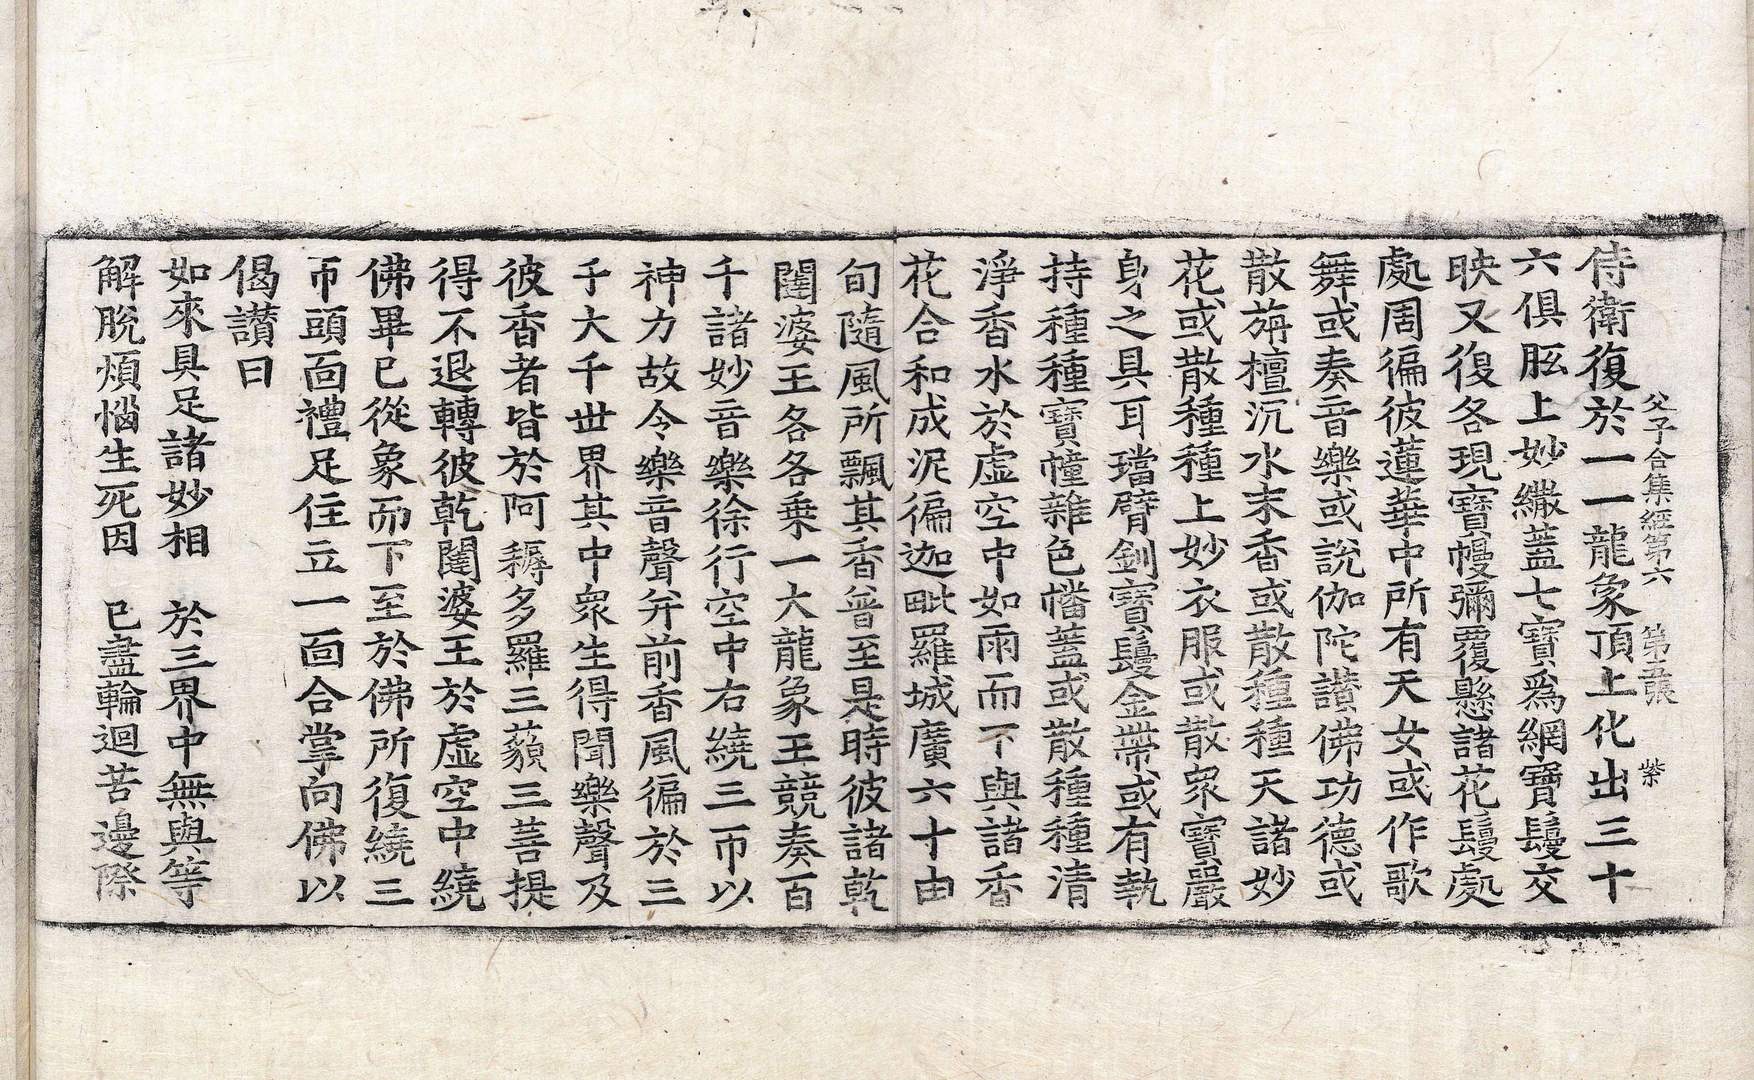 父子合集經第六　第五張　紫
侍衛復於一一龍象頂上化出三十
六俱胝上妙繖蓋七寶爲網寶鬘交
映又復各現寶幔彌覆懸諸花鬘處
處周徧彼蓮華中所有天女或作歌
舞或奏音樂或說伽陀讃佛功德或
散旃檀沉水末香或散種種天諸妙
花或散種種上妙衣服或散衆寶嚴
身之具耳璫臂釧寶鬘金帶或有執
持種種寶幢雜色幡蓋或散種種清
淨香水於虛空中如雨而下與諸香
花合和成泥徧迦毗羅城廣六十由
旬隨風所飄其香普至是時彼諸乾
闥婆王各各乗一大龍象王競奏百
千諸妙音樂徐行空中右繞三帀以
神力故令樂音聲并前香風徧於三
千大千世界其中衆生得聞樂聲及
彼香者皆於阿耨多羅三藐三菩提
得不退轉彼乾闥婆王於虛空中繞
佛畢已從象而下至於佛所復繞三
帀頭面禮足住立一面合掌向佛以
偈讃曰
如來具足諸妙相　於三界中無與等
解脫煩惱生死因　已盡輪迴苦邊際